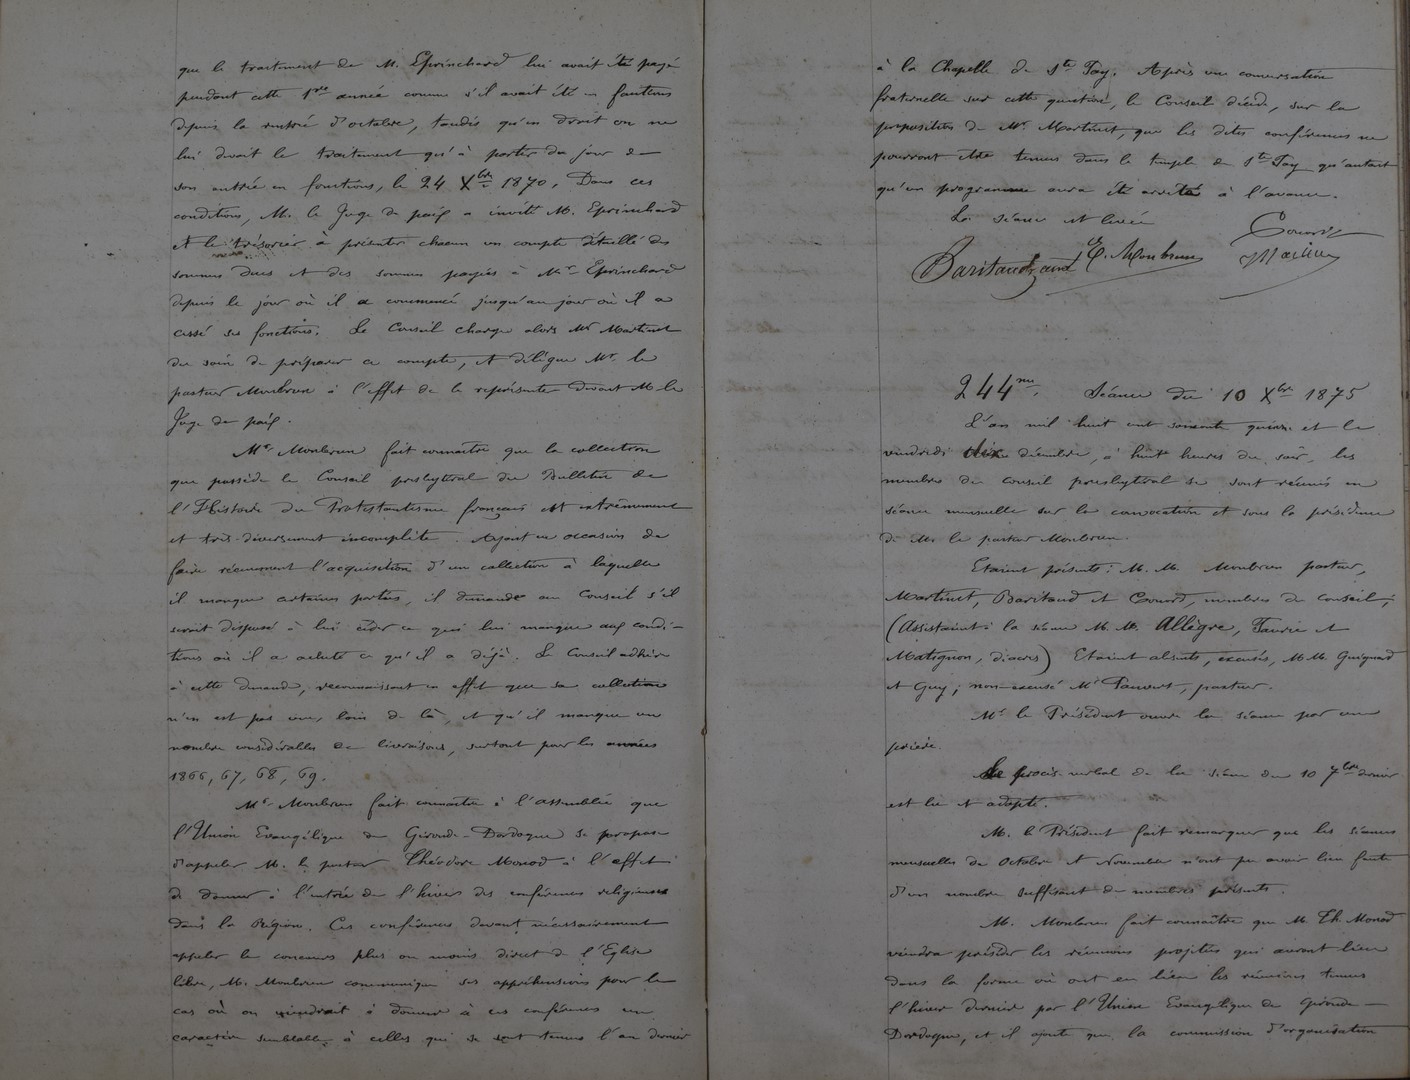 que le traitement de M. Eprinchard lui avait été payé
pendant cette 1re année comme s'il avait été en fonctions
depuis la rentrée d'octobre, tandis qu'en droit on ne
lui devait le traitement qu'à partir du jour de
son entrée en fonctions, le 24 Xbre 1870. Dans ces
conditions, M. le Juge de paix a invité M. Eprinchard
et le trésorier à présenter chacun un compte détaillé des
sommes dues et des sommes payées à Mr Eprinchard
depuis le jour où il a commencé jusqu'au jour où il a
cessé ses fonctions. Le Conseil charge alors Mr Martinet
du soin de préparer ce compte, et délègue Mr. le
pasteur Monbrun à l'effet de le représenter devant M. le
Juge de paix.
Mr. Monbrun fait connaître que la collection
que possède le Conseil presbytéral du Bulletin de
l'Histoire du Protestantisme français est extrêmement
et très-diversement incomplète. Ayant eu occasion de
faire récemment l'acquisition d'une collection à laquelle
il manque certaines parties, il demande au Conseil s'il
serait disposé à lui céder ce qui lui manque aux condi-
tions où il a acheté ce qu'il a déjà. Le Conseil adhère
à cette demande, reconnaissant en effet que sa collection
n'en est pas une, loin de là, et qu'il manque un
nombre considérable de livraisons, surtout pour les années
1866, 67, 68, 69.
Mr. Monbrun fait connaître à l'assemblée que
l'Union Evangélique de Gironde-Dordogne se propose
d'appeler M. le pasteur Théodore Monod à l'effet
de donner à l'entrée de l'hiver des conférences religieuses
dans la Région. Ces conférences devant nécessairement
appeler le concours plus ou moins direct de l'Eglise
libre, M. Monbrun communique ses appréhensions pour le
cas où on viendrait à donner à ces conférences un
caractère semblable à celles qui se sont tenues l'an dernier
à la Chapelle de Ste Foy. Après une conversation
fraternelle sur cette question, le Conseil décide, sur la
proposition de Mr. Martinet, que les dites conférences ne
pourront être tenues dans le temple de Ste Foy qu'autant
qu'un programme aura été arrêté à l'avance.
La séance est levée
Baritaud E. Monbrun Gourd
244me. Séance du 10 Xbre 1875
L'an mil huit cent soixante quinze et le
vendredi dix décembre, à huit heures du soir, les
membres du Conseil presbytéral se sont réunis en
séance mensuelle sur la convocation et sous la présidence
de M. le pasteur Monbrun.
Etaient présents: M. M. Monbrun pasteur,
Martinet, Baritaud et Gourd, membres du Conseil;
(Assistaient à la séance M. M. Allègre, Faurie et
Matignon, diacres) Etaient absents, excusés, M. M. Guignard
et Guy; non-excusé Mr , pasteur.
Mr le Président ouvre la séance par une
prière.
Le procès-verbal de la séance du 10 7bre dernier
est lu et adopté.
M. le Président fait remarquer que les séances
mensuelles de Octobre et Novembre n'ont pu avoir lieu faute
d'un nombre suffisant de membres présents.
M. Monbrun fait connaître que M Th. Monod
viendra présider les réunions projetées qui auront lieu
dans la forme où ont eu lieu les réunions tenues
l'hiver dernier par l'Union Evangélique de Gironde-
Dordogne, et il ajoute que la commission d'organisation